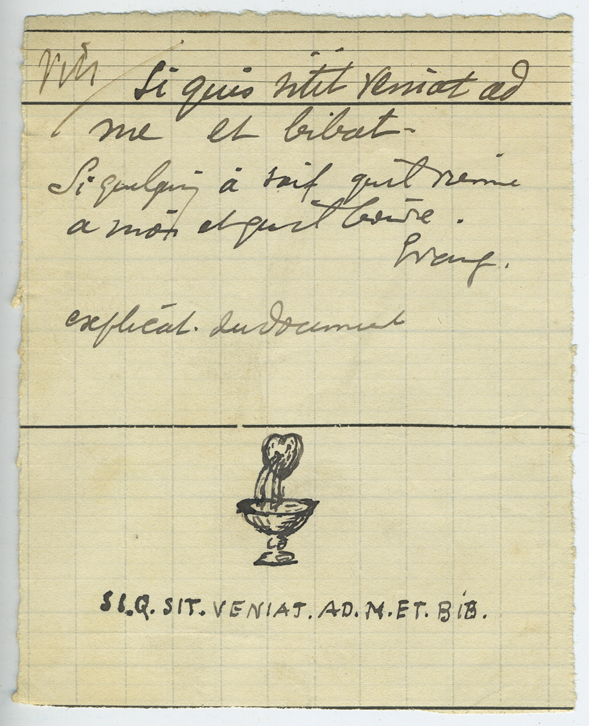 Si quis sitit veniat ad
me et bibat -
Si quelqu'un à soif qu'il vienne
a moi et qu'il boive.
Evang.
explicat. du document
SI.Q. SIT. VENIAT. AD. M. ET. BIB.